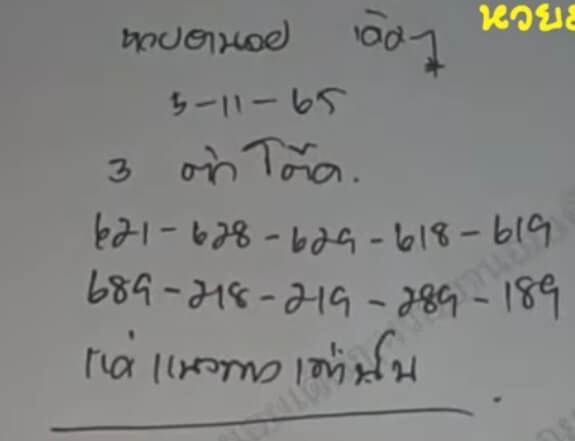 หวยฮานอย เด็ดๆ
หวยฮ
5-11-65
3 ตัว โต๊ด.
621-628-629-618-619
689-218-219-289-189
แค่ แนวทาง เท่านั้น